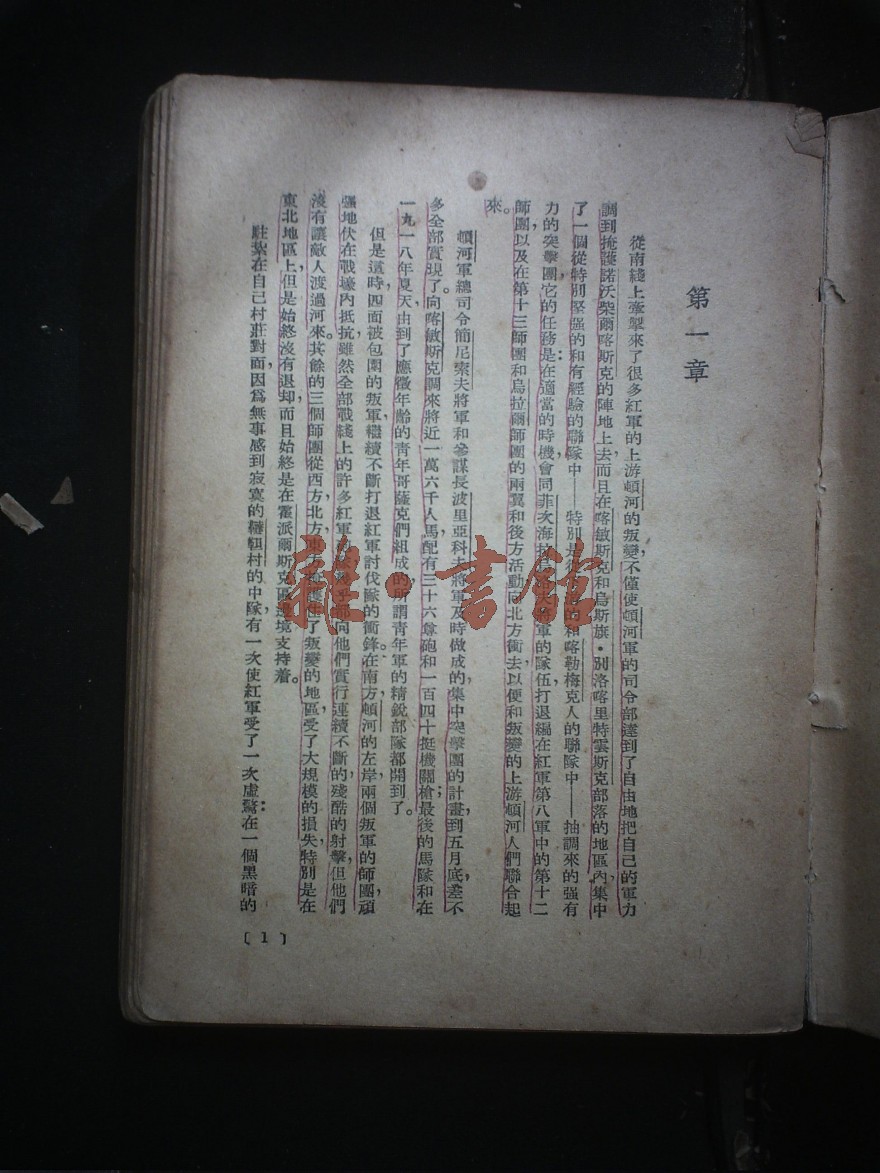 第一章
從南綫上牽掣來了很多紅軍的上游頓河的叛變,不僅使頓河軍的司令部達到了自由地把自己的軍力
調到掩護諾沃柴爾喀斯克的陣地上去,而且在喀敏斯克和烏斯旗·別洛喀里特雲斯克部落的地區內,集中
了一個從特別堅强的和有經驗的聯隊中——特別是從 和喀勒梅克人的聯隊中——抽調來的强有
力的突擊團,它的任務是:在適當的時機會同菲次海 將軍的隊伍,打退編在紅軍第八軍中的第十二
師團,以及在第十三師團和烏拉爾師團的兩翼和後方活動,向北方衝去,以便和叛變的上游頓河人們聯合起
來。
頓河軍總司令簡尼索夫將軍和參謀長波里亞科夫將軍及時做成的集中突擊團的計畫,到五月底,差不
多全部實現了。向喀敏斯克調來將近一萬六千人馬,配有三十六尊砲和一百四十挺機關槍;最後的馬隊和在
一九一八年夏天,由到了應徵年齡的青年哥薩克們組成的所謂青年軍的精銳部隊都開到了。
但是這時,四面被包圍的叛軍,繼續不斷打退紅軍討伐隊的衝鋒。在南方,頓河的左岸,兩個叛軍的師團,頑
强地伏在戰壕內抵抗,雖然全部戰綫上的許多紅軍 幾乎都向他們實行連續不斷的殘酷的射擊,但他們
沒有讓敵人渡過河來。其餘的三個師團從西方,北方,東方掩護住了叛變的地區,受了大規模的損失,特別是在
東北地區上,但是始終沒有退却,而且始終是在霍派爾斯克區邊境支持着。
駐紮在自己村莊對面,因爲無事感到寂寞的韃靼村的中隊,有一次使紅軍受了一次虛驚:在一個黑暗的
〔1〕
雜·書館